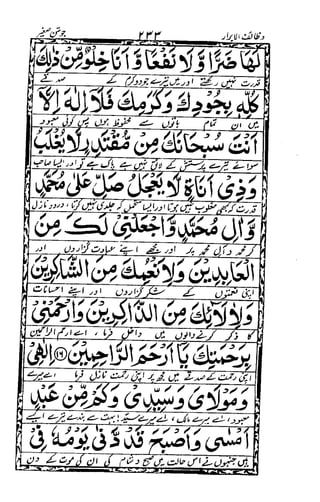 وظائف الابرار ۲۳۳ جوشن صغیر
لَهَا ضَرًّا وَّلَا نَفْعًا وَّاَنَا خِلْوٌ مِّنْ ذٰلِكَ
قدرت نہیں رکھتے اور میں تیرے جود و کرم کے صدقے
كُلِّهٖ بِجُوْدِكَ وَكَرَمِكَ فَلَآ اِلٰهَ اِلَّا
میں ان تمام باتوں سے محفوظ ہوں پس کوئی معبود
اَنْتَ سُبْحَانَكَ مِنْ مُّقْتَدِرٍ لَّا يُغْلَبُ
سوائے تیرے پرستش کے لائق نہیں ہے پاک ہے تو اور ایسا صاحب
وَذِيْ اَنَاةٍ لَّا يَعْجَلُ صَلِّ عَلٰى مُحَمَّدٍ
قدرت کہ کبھی مغلوب نہیں ہوتا اور ایسا متحمل کہ جلدی نہیں کرتا درود نازل
وَّاٰلِ مُحَمَّدٍ وَّاجْعَلْنِيْ لَكَ مِنَ
کر محمد و آل محمد پر اور مجھے اپنے عبادت گزاروں اور
الْعَابِدِيْنَ وَلِاَنْعُمِكَ مِنَ الشَّاكِرِيْنَ
اپنی نعمتوں کے شکر گزاروں اور اپنے احسانات
وَلِاٰلَآئِكَ مِنَ الذَّاكِرِيْنَ وَارْحَمْنِيْ
کا ذکر کرنے والوں میں داخل فرما، اے ارحم الراحمین
بِرَحْمَتِكَ يَآ اَرْحَمَ الرَّاحِمِيْنَ (۱۶) اِلٰهِيْ
اپنی رحمت کے صدقے میں مجھ پر اپنی رحمت نازل فرما اے میرے
وَمَوْلَايَ وَسَيِّدِيْ وَكَمْ مِّنْ عَبْدٍ
معبود، اے میرے مالک، اے میرے سید! بہت سے بندے تیرے ایسے
اَمْسٰى وَاَصْبَحَ قَدْ دَنٰى يَوْمُهٗ فِيْ
ہیں جنہوں نے اس حالت میں صبح و شام کی ان کی موت کے دن